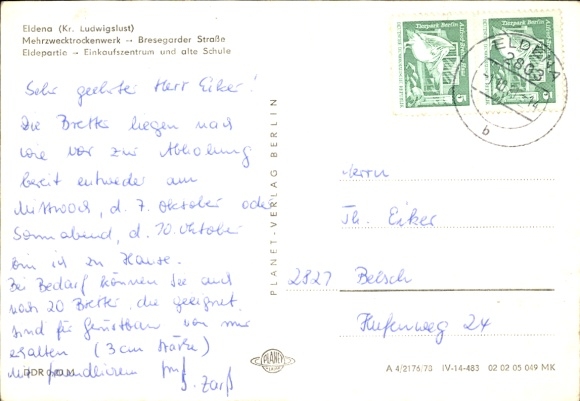 Eldena (Kr. Ludwigslust)
Mehrzwecktrockenwerk – Bresegarder Straße
Eldepartie – Einkaufszentrum und alte Schule
Sehr geehrter Herr Eiker!
Die Bretter liegen nach
wie vor zur Abholung
bereit entweder am
Mittwoch, d. 7. Oktober oder
Sonnabend, d. 10. Oktober
bin ich zu Hause.
Bei Bedarf können Sie auch
noch 20 Bretter, die geeignet
sind für Gerüstbau von mir
erhalten (3 cm Stärke)
Mit freundlichem Gruß
Zarß
DDR
PLANET-VERLAG BERLIN
PLANET
Tierpark Berlin
5
Tierpark Berlin
5
ELDENA
2803
b
Herrn
Th. Eiker
2827 Belsch
Hufenweg 24
A 4/2176/73 IV-14-483 02 02 05 049 MK